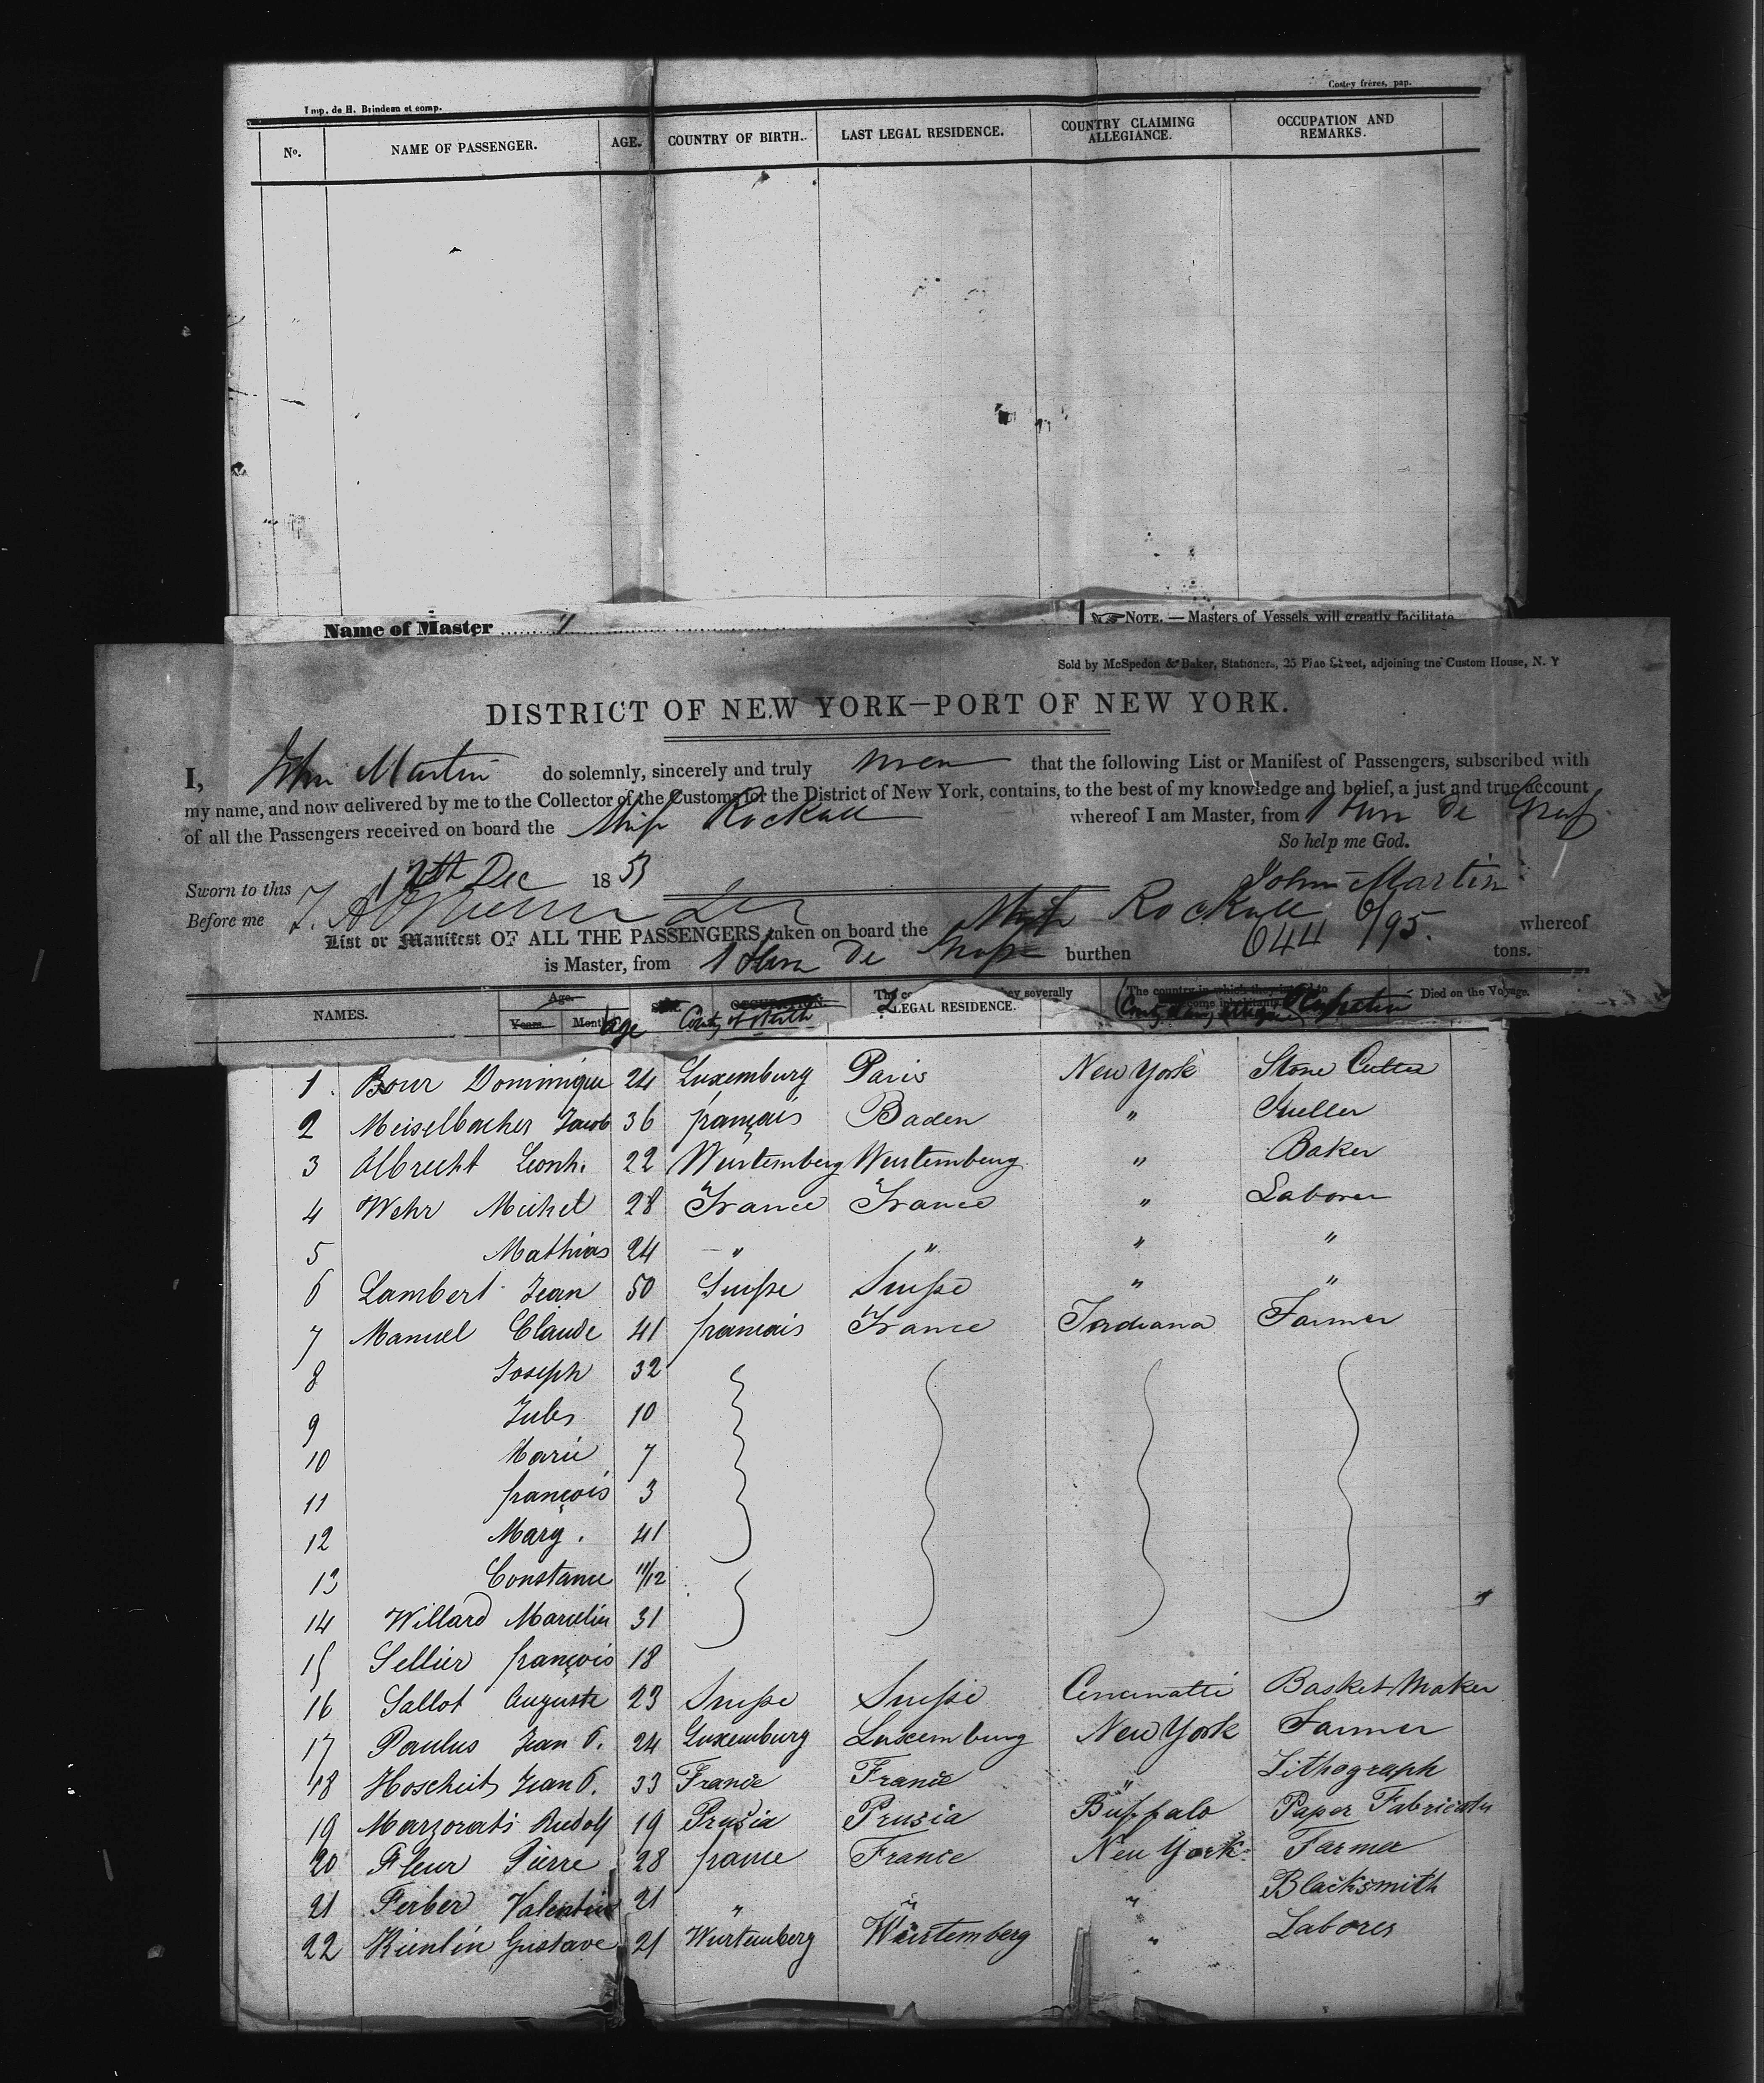 Imp. de H. Brindeau et comp.
Costey frères, pap.
No. NAME OF PASSENGER. AGE. COUNTRY OF BIRTH. LAST LEGAL RESIDENCE. COUNTRY CLAIMING ALLEGIANCE. OCCUPATION AND REMARKS.
Name of Master
NOTE. — Masters of Vessels will greatly facilitate
Sold by McSpedon & Baker, Stationers, 25 Pine Street, adjoining the Custom House, N. Y
DISTRICT OF NEW YORK—PORT OF NEW YORK.
I, John Martin do solemnly, sincerely and truly that the following List or Manifest of Passengers, subscribed with
my name, and now delivered by me to the Collector of the Customs for the District of New York, contains, to the best of my knowledge and belief, a just and true account
of all the Passengers received on board the Ship Rockall whereof I am Master, from De
So help me God.
Sworn to this 12th Dec 1853
John Martin
Before me
List or Manifest OF ALL THE PASSENGERS taken on board the Ship Rockall whereof
is Master, from De burthen 644 6/95. tons.
NAMES. Age. Years. Months Age SEX. OCCUPATION. Country of Birth LEGAL RESIDENCE. The country in which they intend to become inhabitants Occupation Died on the Voyage.
1 Bour Dominique 24 Luxemburg Paris New York Stone Cutter
2 Meiselbacher Jacob 36 français Baden "
3 Albrecht Leonh. 22 Wurtemberg Wurtemburg " Baker
4 Wehr Michel 28 France France " Laborer
5 Mathias 24 " " " "
6 Lambert Jean 50 Suisse Suisse " "
7 Manuel Claude 41 francais France Indiana Farmer
8 Joseph 32
9 Jules 10
10 Marie 7
11 françois 3
12 Mary. 41
13 Constance 11/12
14 Willard Marcelin 31
15 Sellier françois 18
16 Sallot Auguste 23 Suisse Suisse Cincinatti Basket Maker
17 Paulus Jean P. 24 Luxemburg Luxemburg New York Farmer
18 Hoscheit Jean P. 33 France France " Lithograph
19 Marzorati Rudolf 19 Prusia Prusia Buffalo Paper
20 Fleur Pierre 28 france France New York Farmer
21 Ferber Valentin 21 " " " Blacksmith
22 Kienlin Gustave 21 Wurtemberg Würtemberg " Laborer